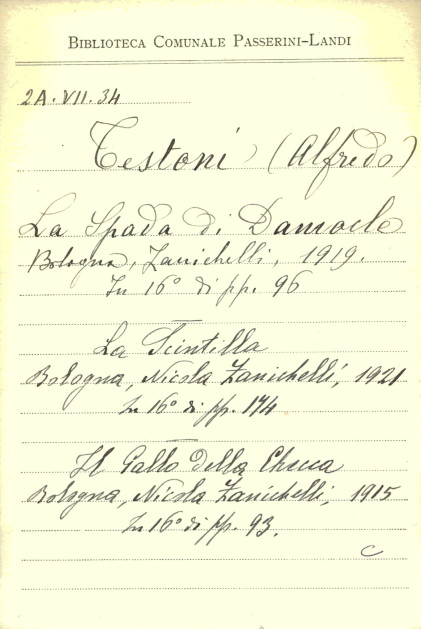 BIBLIOTECA COMUNALE PASSERINI-LANDI
2A. VII. 34
Testoni (Alfredo)
La Spada di Damocle
Bologna, Zanichelli, 1919.
In 16° di pp. 96
La Scintilla
Bologna, Nicola Zanichelli, 1921
In 16° di pp. 174
Il Gallo della Checca
Bologna, Nicola Zanichelli, 1915
In 16° di pp. 93.
C